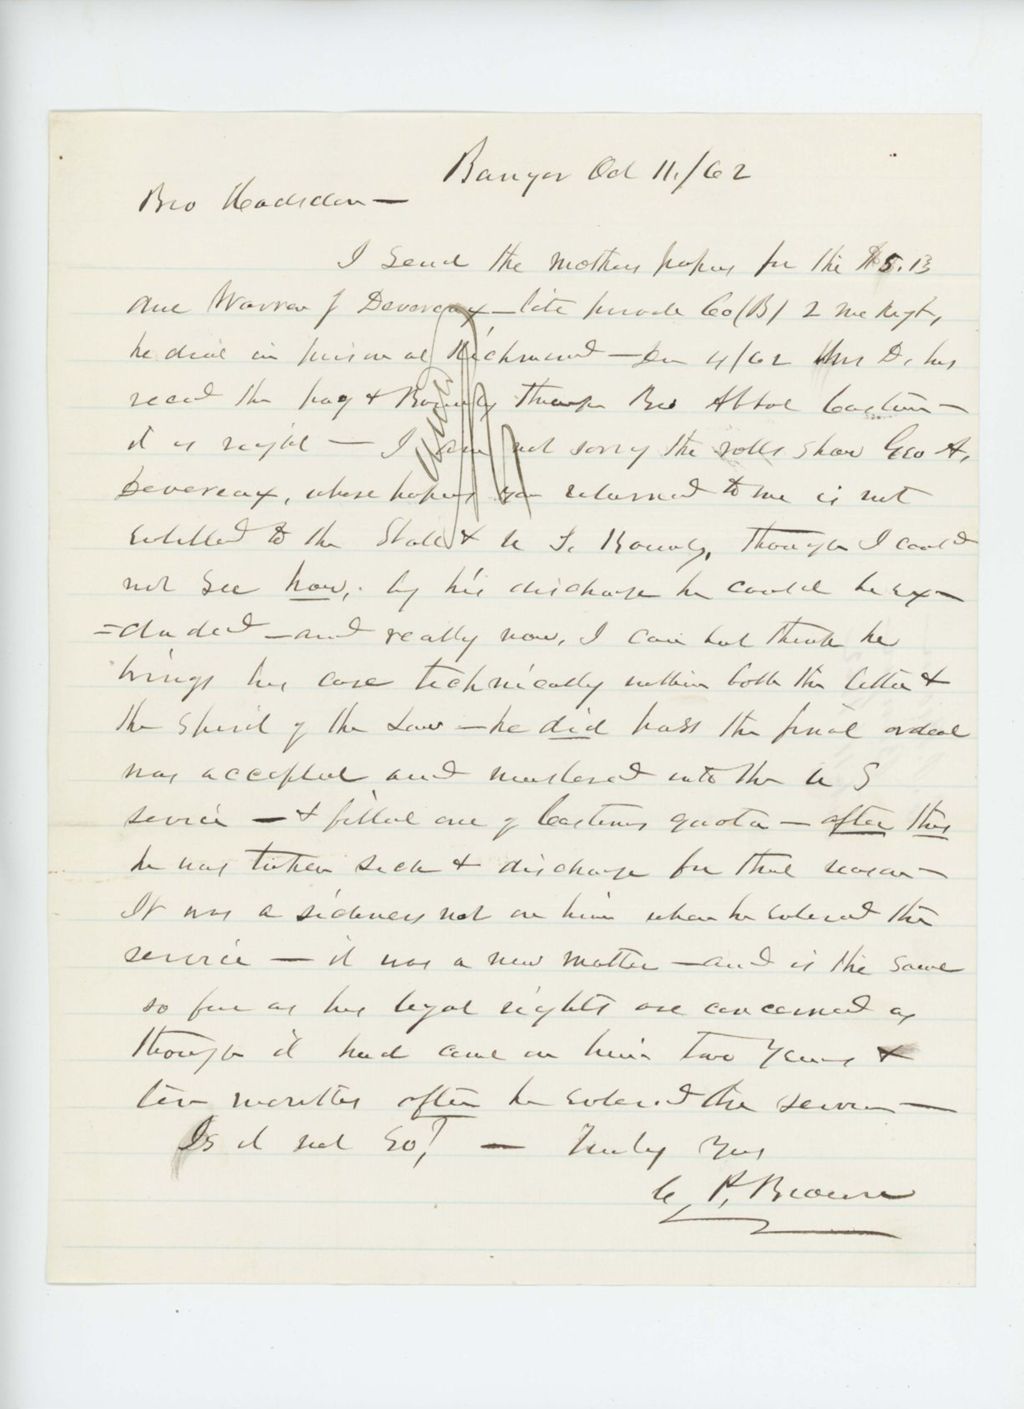 Bangor Oct 11./62
Bro Hodsdon —
I send the mothers papers for the S. B
due Warren J Devereax — late private Co (B) 2 Me Regt,
he died in prison at Richmond — Jan 4/62 Mrs D. has
recd the pay & Bounty through Bro Abbot Castine —
it is right — I am not sorry the rolls show Geo A.
Devereax, whose papers you returned to me is not
entitled to the State & U S. Bounty, though I could
not see how, by his discharge he could be ex=
=cluded — and really now, I can but think he
brings his case technically within both the letter &
the spirit of the Law — he did pass the final ordeal
was accepted and mustered into the U S
service — & filled one of Castines quota — after this
he was taken sick & discharge for that reason —
It was a sickness not on him when he entered the
service — it was a new matter — and is the same
so far as his legal rights are concerned as
though it had come on him two years &
ten months after he entered the service —
Is it not so? — Truly Yrs
C. P. Brown